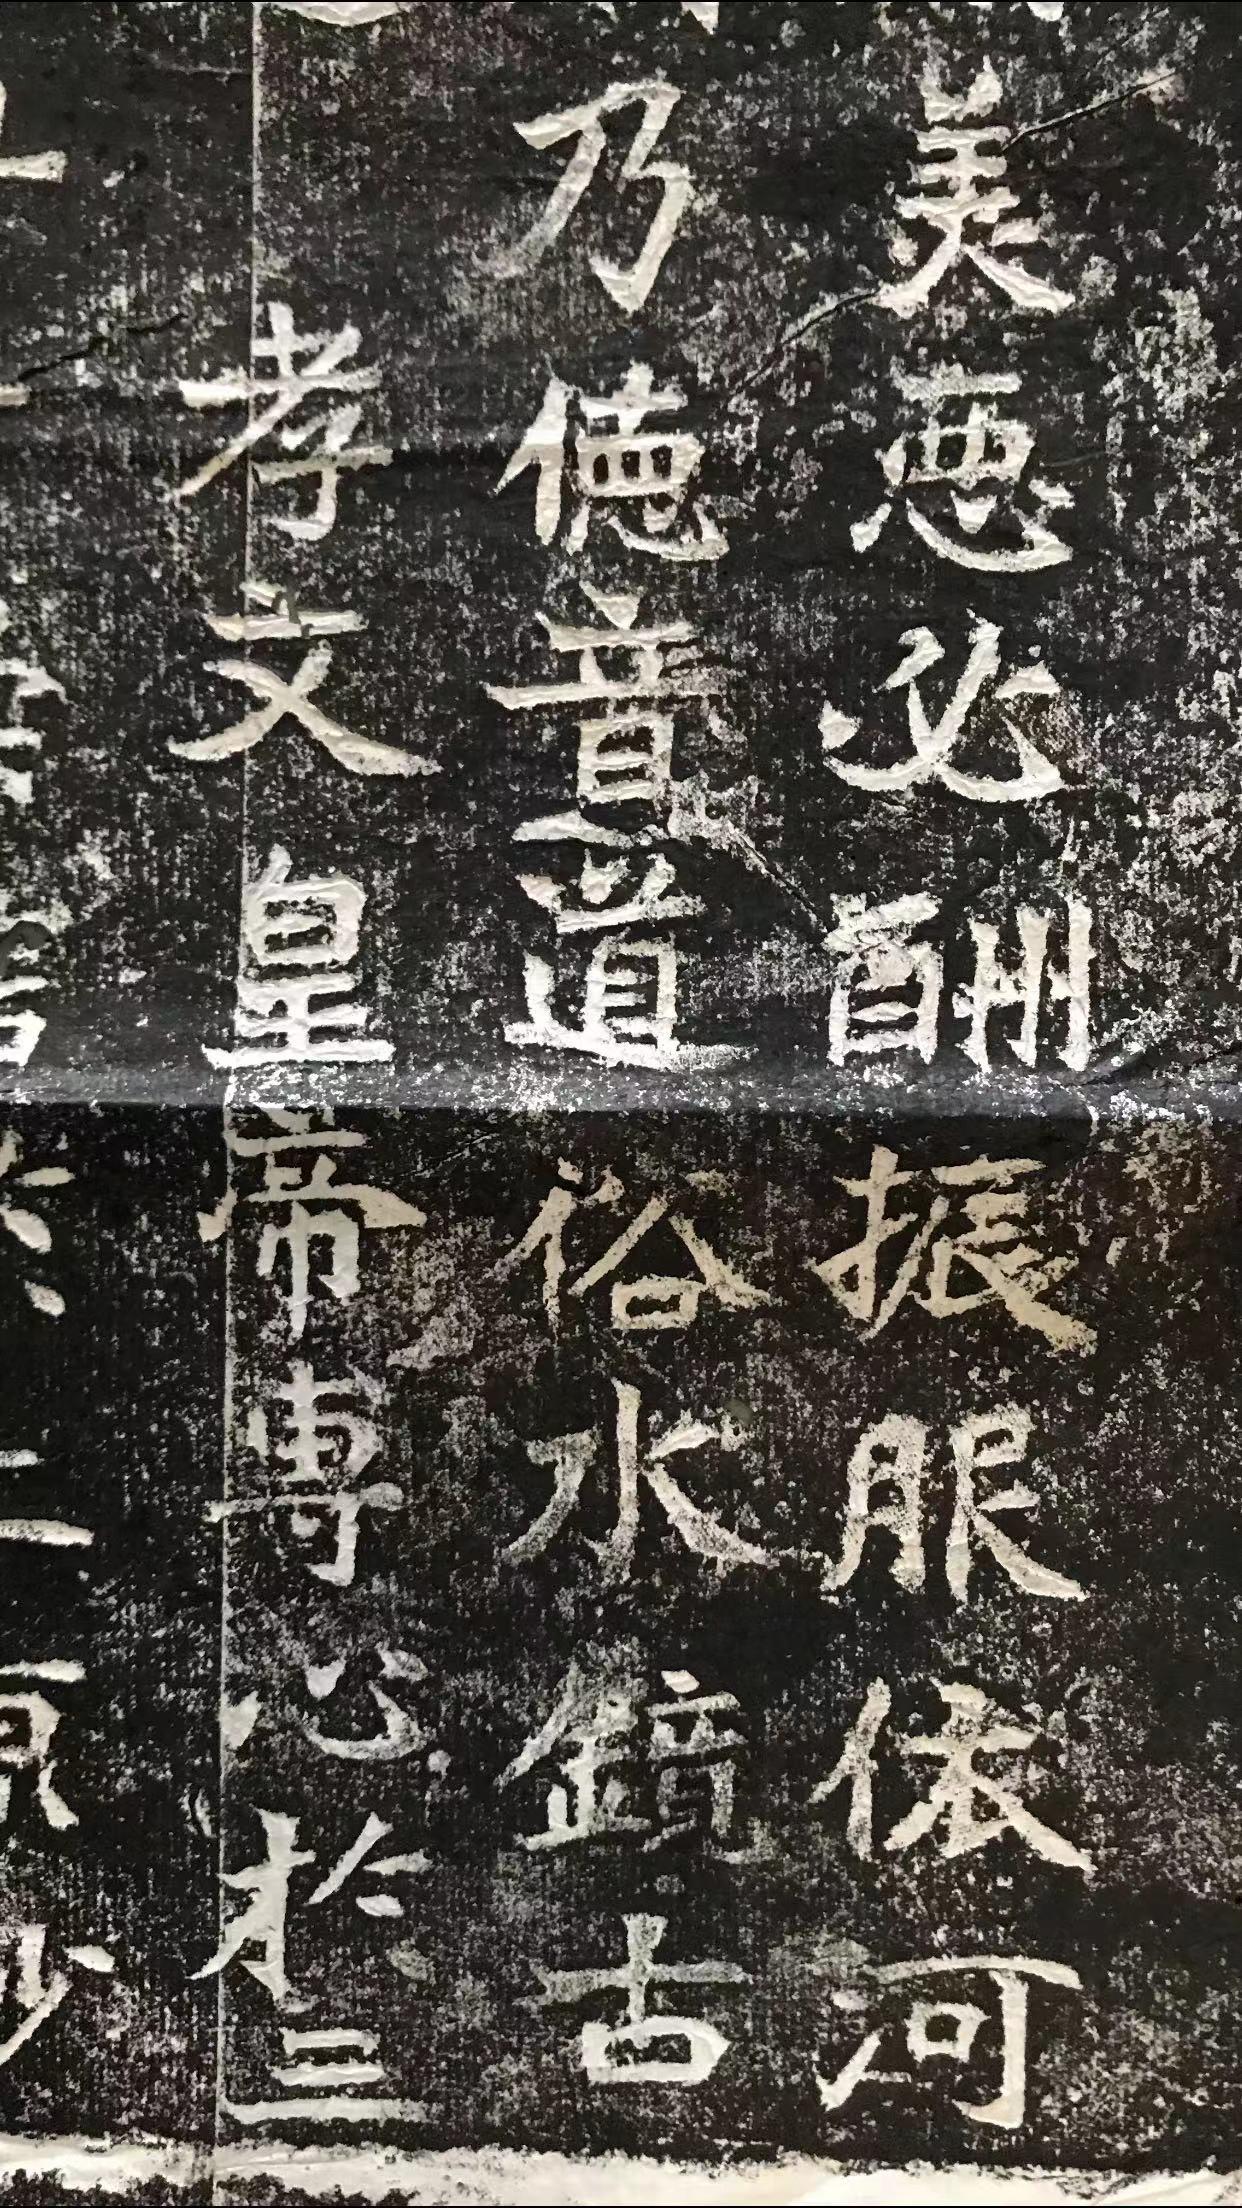 美惡必酬振服依河
乃德音道俗水鏡古
孝文皇帝專心於三